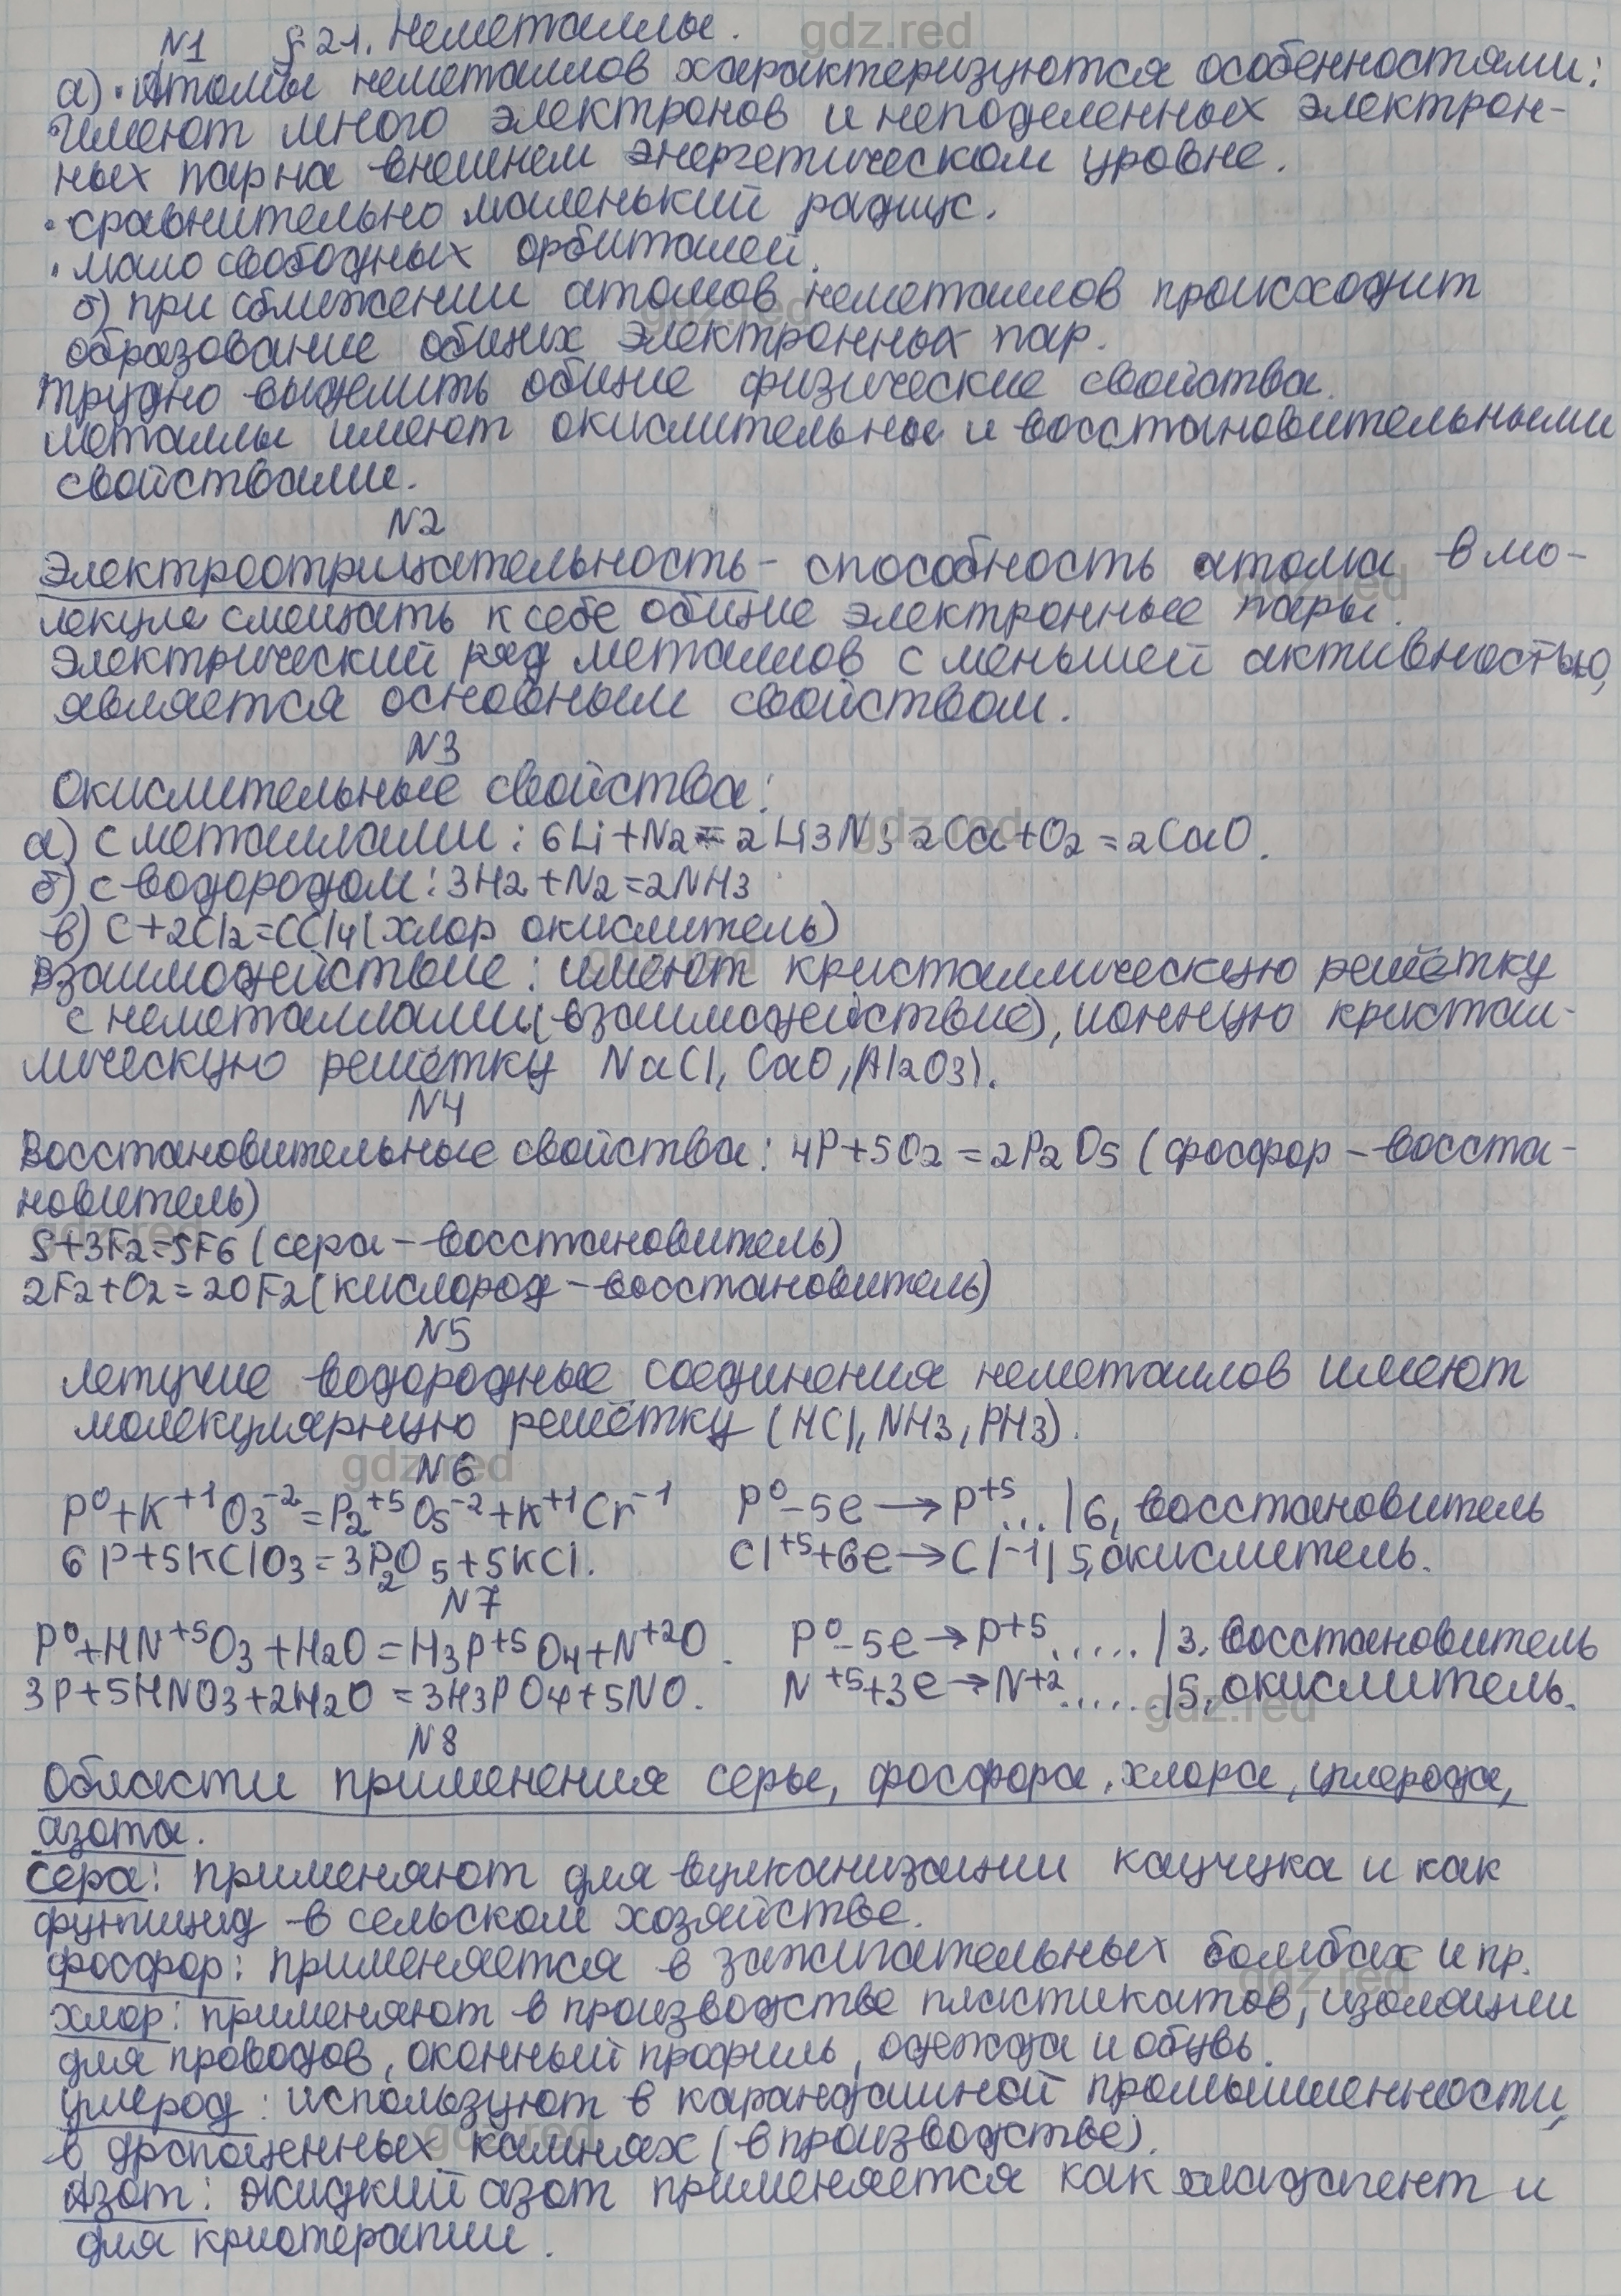 gdz.red
§ 21. Неметаллы.
N1
а) • Атомы неметаллов характеризуются особенностями:
• имеют много электронов и неподеленных электрон-
ных пар на внешнем энергетическом уровне.
• сравнительно маленький радиус.
• мало свободных орбиталей.
б) при сближении атомов неметаллов происходит
образование общих электронных пар.
Трудно выделить общие физические свойства.
металлы имеют окислительные и восстановительными
свойствами.
N2
Электроотрицательность - способность атома в мо-
лекуле смещать к себе общие электронные пары.
Электрический ряд металлов с меньшей активностью,
является основным свойством.
N3
Окислительные свойства:
а) с металлами: 6Li+N2=2Li3N; 2Ca+O2=2CaO.
б) с водородом: 3H2+N2=2NH3
в) C+2Cl2=CCl4 (хлор окислитель)
Взаимодействие: имеют кристаллическую решётку
с неметаллами (взаимодействие), ионную кристал-
лическую решётку NaCl, CaO, Al2O3).
N4
Восстановительные свойства: 4P+5O2=2P2O5 (фосфор-восста-
новитель)
S+3F2=SF6 (сера-восстановитель)
2F2+O2=2OF2 (кислород-восстановитель)
N5
Летучие водородные соединения неметаллов имеют
молекулярную решётку (HCl, NH3, PH3).
N6
P⁰+K⁺¹O3⁻²=P2⁺⁵O5⁻²+K⁺¹Cr⁻¹ P⁰-5e→P⁺⁵...|6, восстановитель
6P+5KClO3=3P2O5+5KCl. Cl⁺⁵+6e→Cl⁻¹|5, окислитель.
N7
P⁰+HN⁺⁵O3+H2O=H3P⁺⁵O4+N⁺²O. P⁰-5e→P⁺⁵.....|3, восстановитель
3P+5HNO3+2H2O=3H3PO4+5NO. N⁺⁵+3e→N⁺².....|5, окислитель.
N8
Области применения серы, фосфора, хлора, углерода,
азота.
Сера: применяют для вулканизации каучука и как
фунгицид в сельском хозяйстве.
фосфор: применяется в зажигательных бомбах и пр.
хлор: применяют в производстве пластикатов, изоляции
для проводов, оконный профиль, одежда и обувь.
углерод: используют в карандашной промышленности,
в драгоценных камнях (в производстве).
Азот: жидкий азот применяется как хладагент и
для криотерапии.